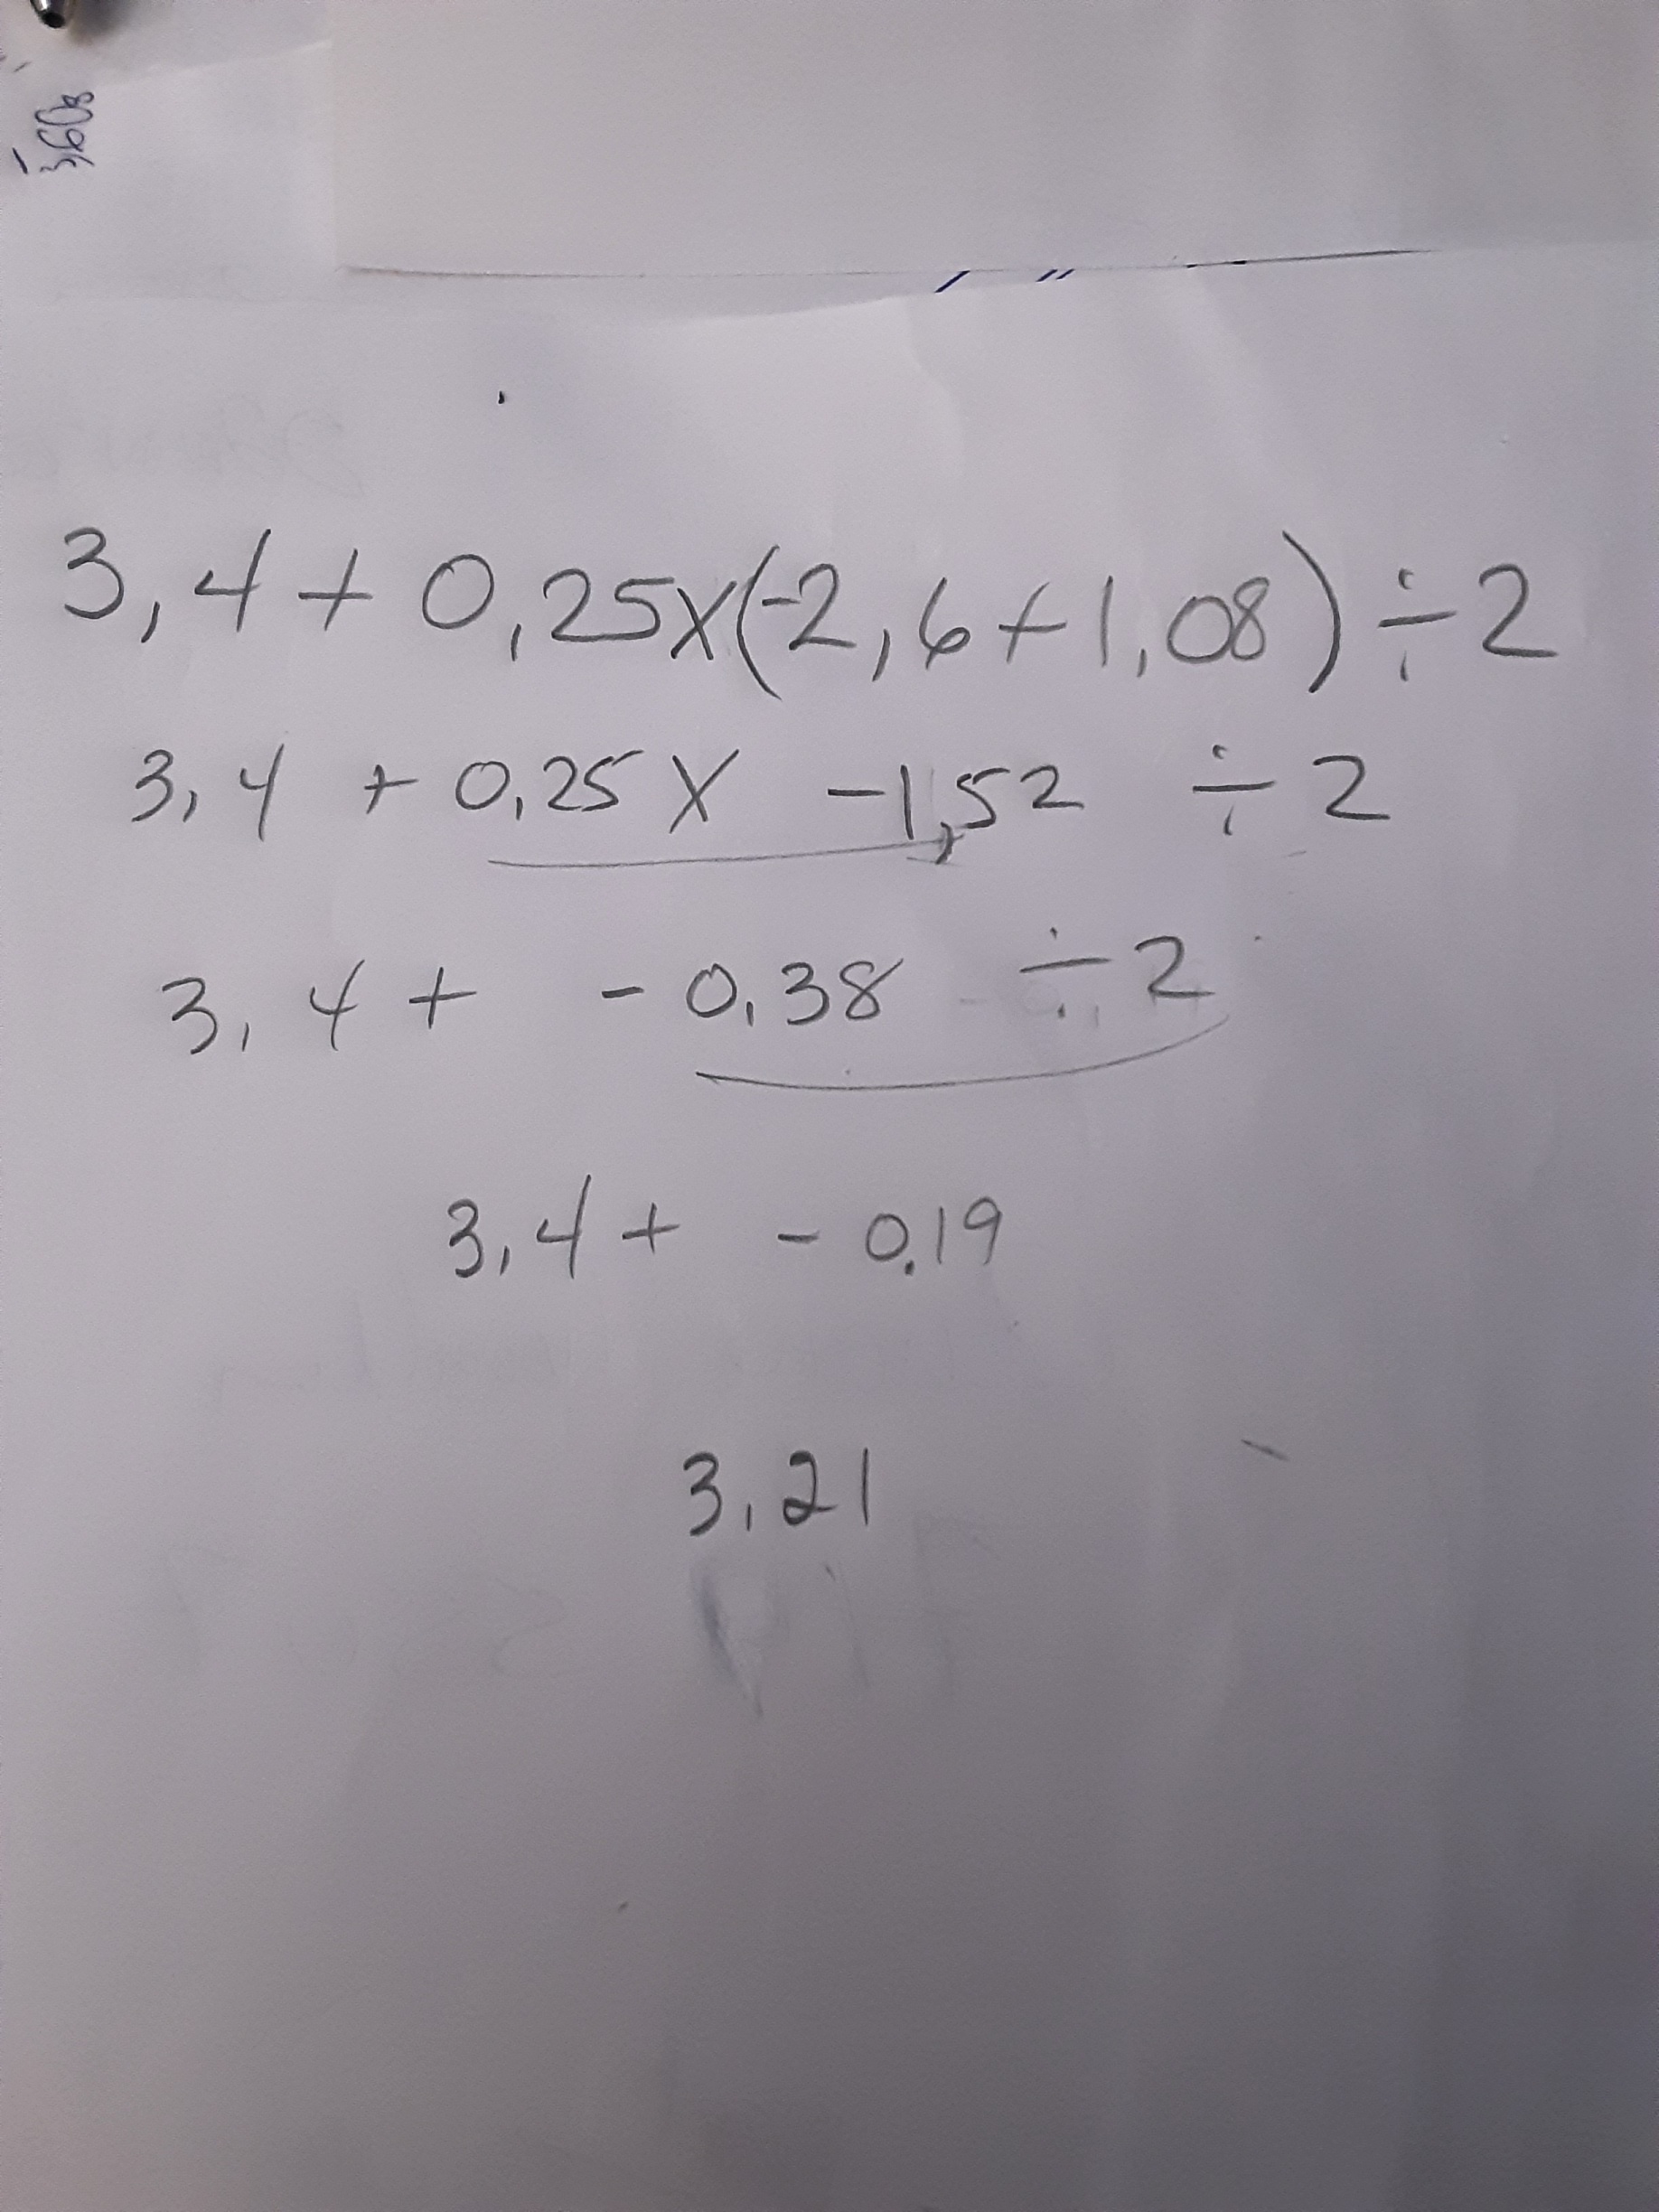 3,608
3,4 + 0,25x(-2,6+1,08) ÷ 2
3,4 + 0,25 X -1,52 ÷ 2
3,4 + - 0,38 ÷ 2
3,4 + - 0,19
3,21